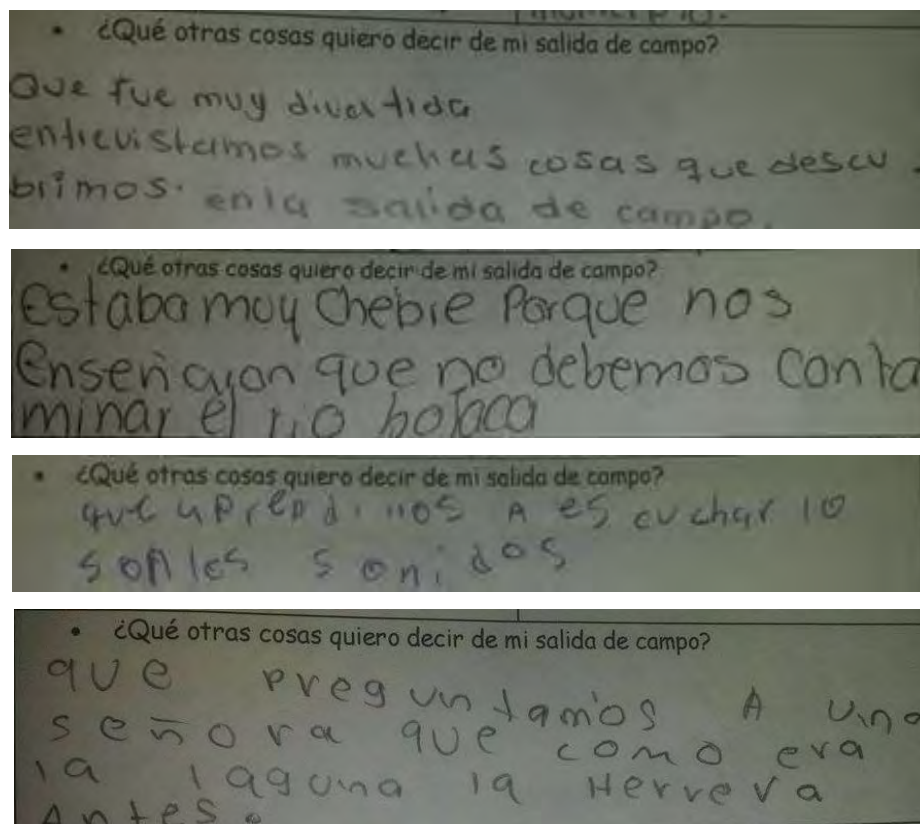 • ¿Qué otras cosas quiero decir de mi salida de campo?
Que fue muy divertida
entrevistamos muchas cosas que descu
brimos. en la salida de campo.
• ¿Qué otras cosas quiero decir de mi salida de campo?
Estaba muy Chebre Porque nos
enseñaron que no debemos conta
minar el rio bojaca
• ¿Qué otras cosas quiero decir de mi salida de campo?
que aprendimos A es cuchar lo
son les sonidos
• ¿Qué otras cosas quiero decir de mi salida de campo?
que preguntamos A una
señora que como era
la laguna la Herrera
Antes.